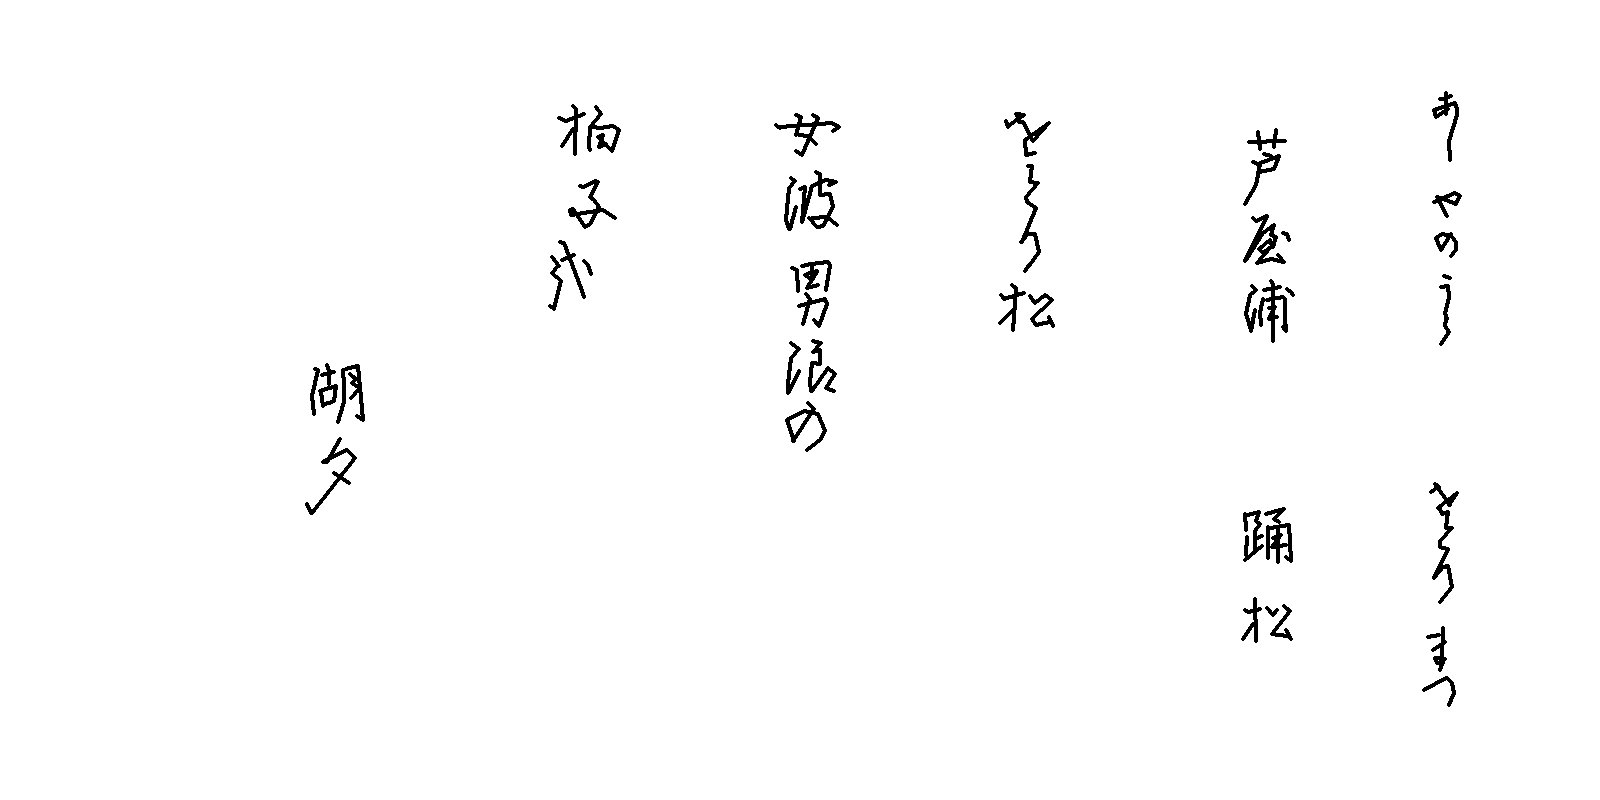 あしやのうら　をとりまつ
芦屋浦　踊松
をとり松
女波男浪の
柏子哉
湖夕